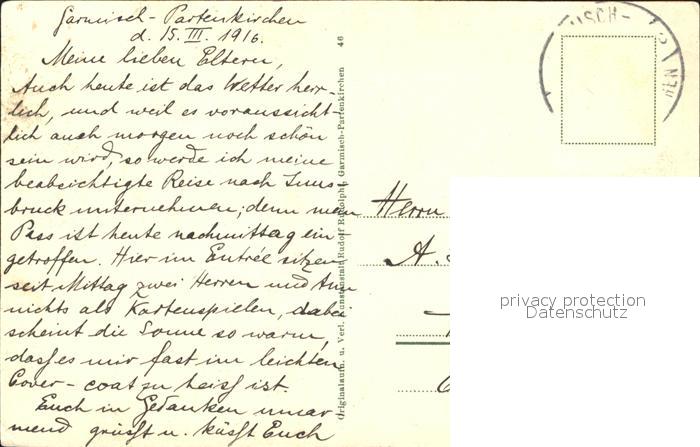 Garmisch-Partenkirchen
d. 15. III. 1916.
Meine lieben Eltern,
Auch heute ist das Wetter herr-
lich, und weil es voraussicht-
lich auch morgen noch schön
sein wird, so werde ich meine
beabsichtigte Reise nach Inns-
bruck unternehmen; denn mein
Pass ist heute nachmittag ein-
getroffen. Hier im Entrée sitzen
seit Mittag zwei Herren und tun
nichts als Kartenspielen, dabei
scheint die Sonne so warm,
dass es mir fast im leichten
Cover-coat zu heiss ist.
Euch in Gedanken umar
mend grüsst u. küsst Euch
46
Originalaufn. u. Verl. Kunstanstalt Rudolf Rudolphi, Garmisch-Partenkirchen
MISCH-
Herrn
A.
privacy protection
Datenschutz